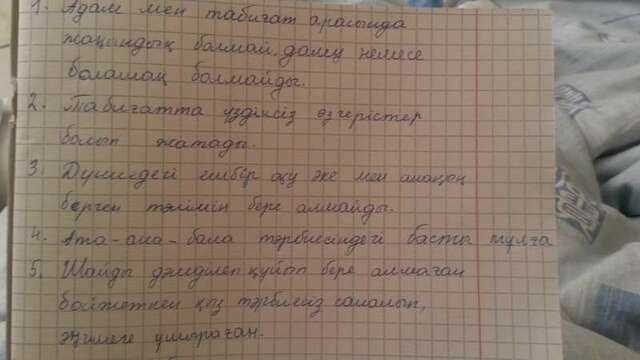 1. Адам мен табиғат арасында
жақындық болмай, әлем немесе
болашақ болмайды.
2. Табиғатта үздіксіз өзгерістер
болып жатады.
3. Дүниедегі ешбір оқу әке мен ананың
берген тәлімін бере алмайды.
4. Ата-ана - бала тәрбиесіндегі басты тұлға
5. Шайды дәмділеп құйып бере алмаған
бойжеткен қыз тәрбиесіз саналып,
әңгімеге ұшыраған.